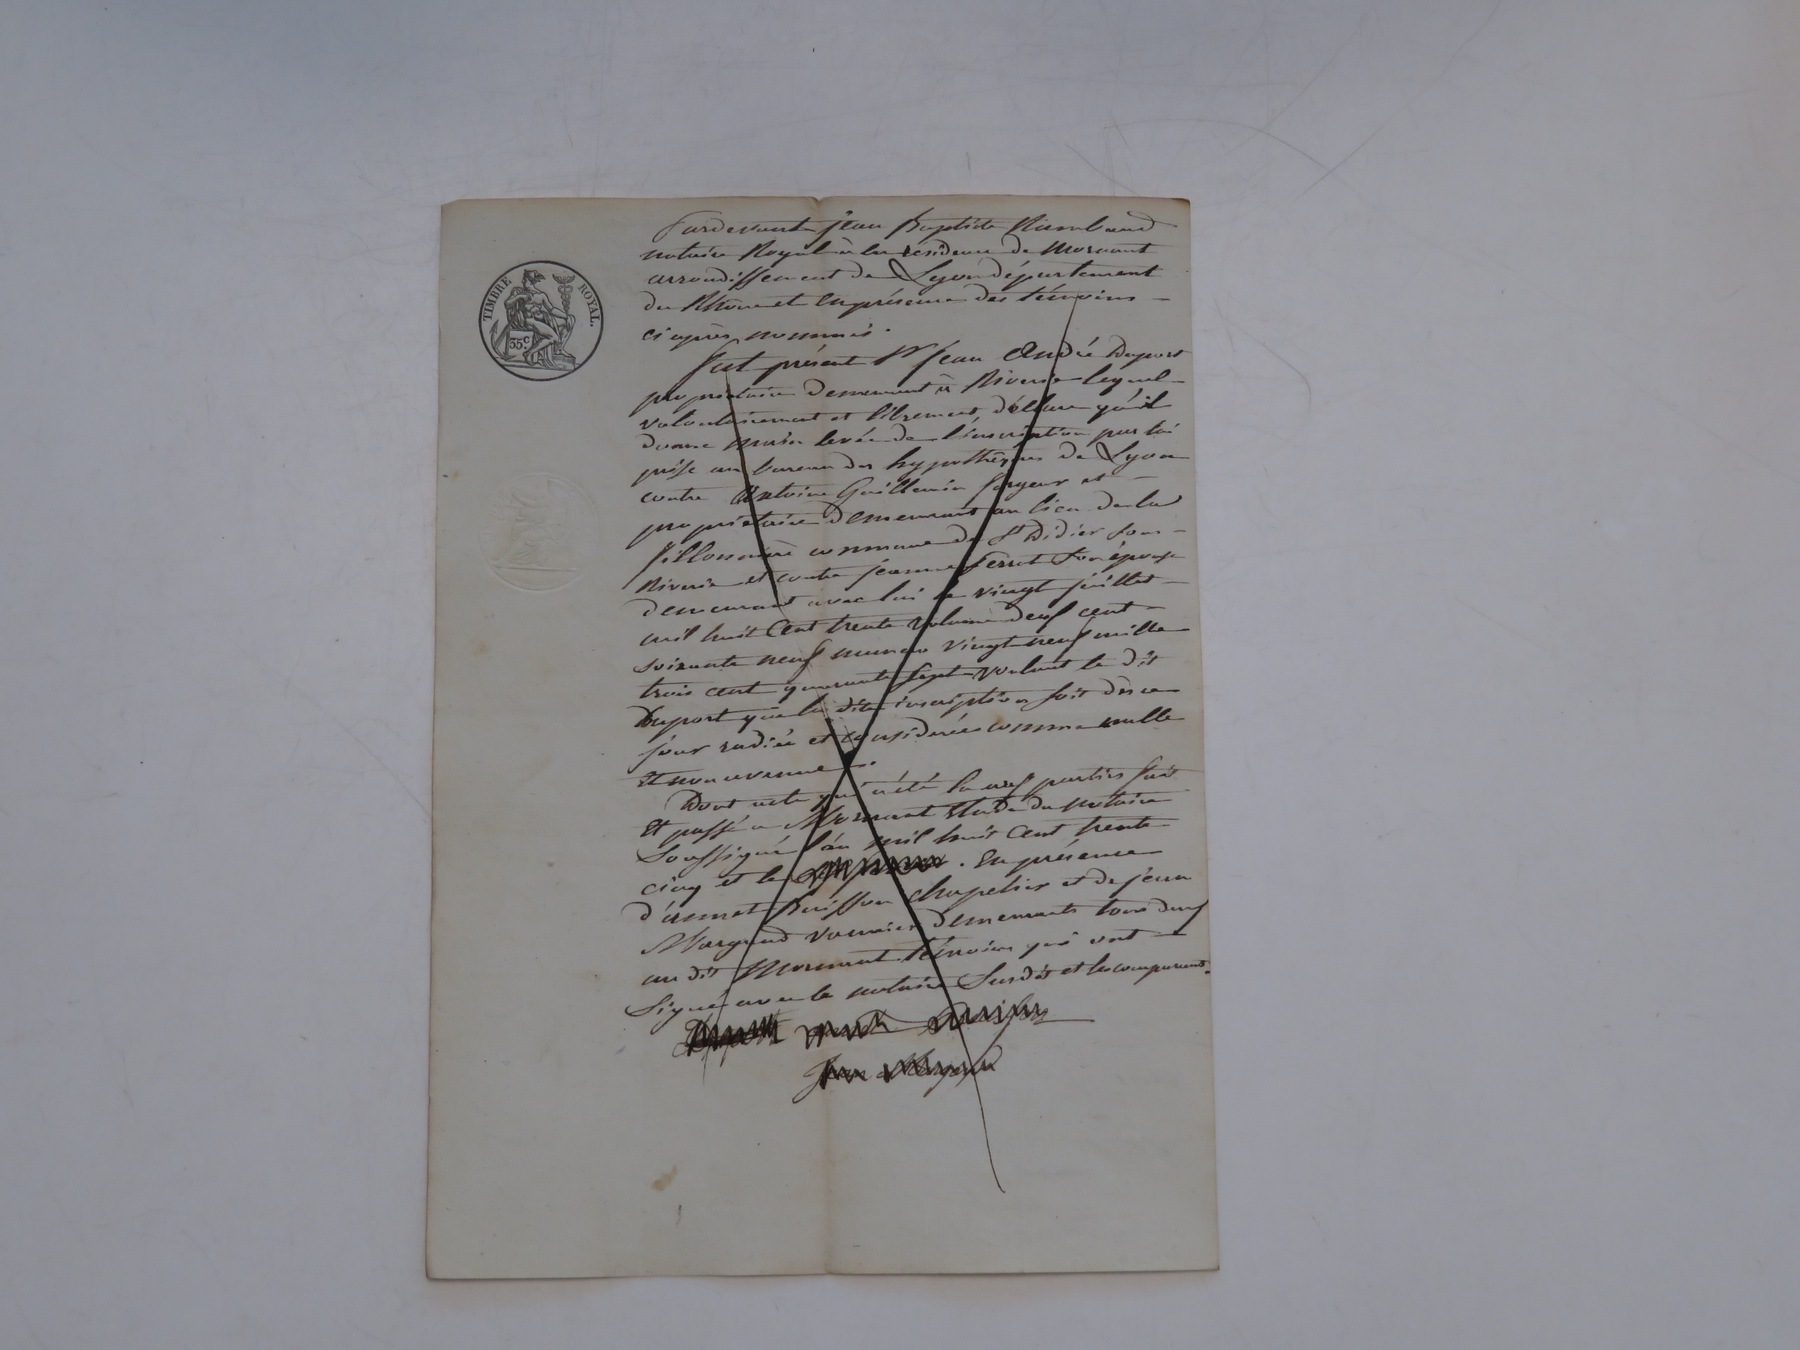 TIMBRE ROYAL.
35c
Pardevant jean Baptiste Rimbaud
notaire Royal à la residence de Mornant
arrondissement de Lyon département
du Rhone et en présence des témoins
ci après nommés.
fut présent Sr jean André Duport
propriétaire demeurant à Riverie lequel
volontairement et librement, déclare qu'il
donne main levée de l'inscription par lui
prise au bureau des hypothèques de Lyon
contre Antoine Guillemin et
propriétaire demeurant au lieu de la
commune de St Didier sous
Riverie et contre jeanne ferrot son épouse
demeurant avec lui le vingt juillet
mil huit cent trente volume deux cent
soixante neuf numero vingt neuf mille
trois cent quarante sept voulant le dit
Duport que la dite inscription soit dès ce
jour radiée et considérée comme nulle
et non avenue.
Dont acte qui a été lu aux parties fait
et passé a Mornant Etude du notaire
soussigné l'an mil huit cent trente
cinq et le . En présence
d'annet Buisson chapelier et de jean
Margand demeurants tous deux
au dit Mornant témoins qui ont
signé avec le notaire susdit et le comparant.